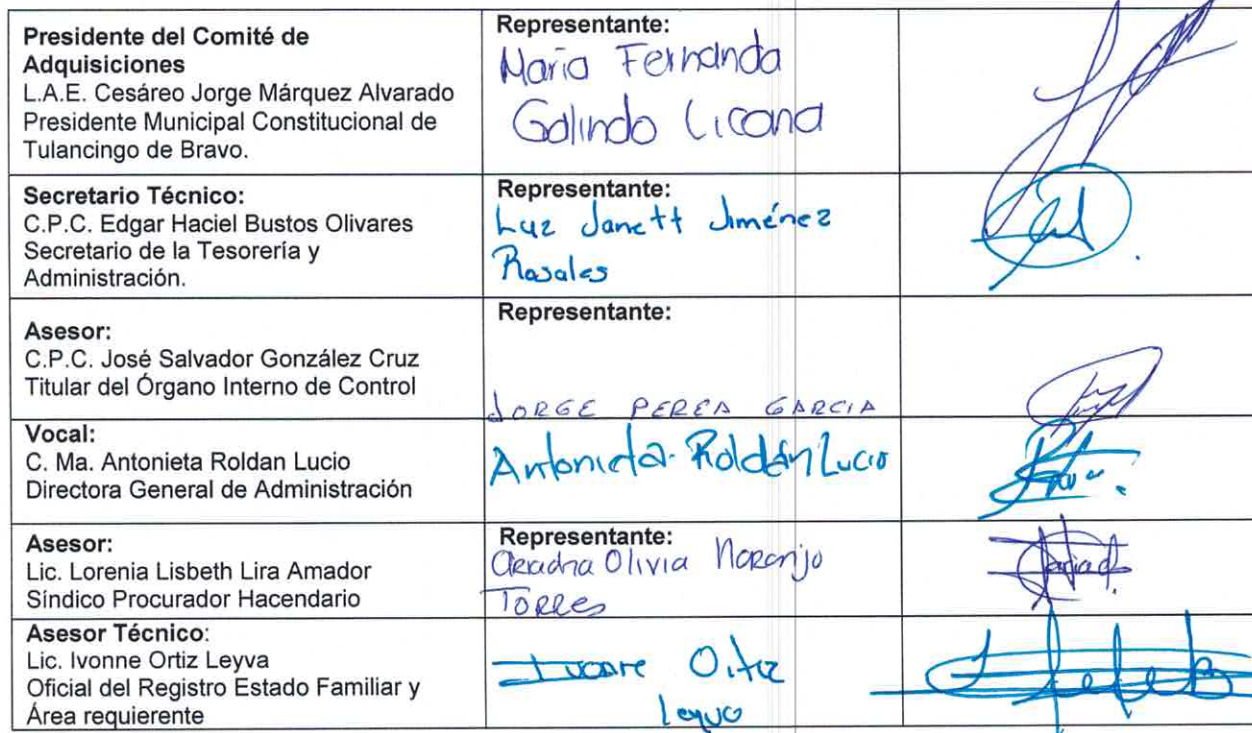 Presidente del Comité de
Adquisiciones
L.A.E. Cesáreo Jorge Márquez Alvarado
Presidente Municipal Constitucional de
Tulancingo de Bravo.
Representante:
Maria Fernanda
Galindo Licona
Secretario Técnico:
C.P.C. Edgar Haciel Bustos Olivares
Secretario de la Tesorería y
Administración.
Representante:
Luz Janett Jiménez
Rosales
Asesor:
C.P.C. José Salvador González Cruz
Titular del Órgano Interno de Control
Representante:
JORGE PEREA GARCIA
Vocal:
C. Ma. Antonieta Roldan Lucio
Directora General de Administración
Antonieta Roldán Lucio
Asesor:
Lic. Lorenia Lisbeth Lira Amador
Síndico Procurador Hacendario
Representante:
Olivia Naranjo
Torres
Asesor Técnico:
Lic. Ivonne Ortiz Leyva
Oficial del Registro Estado Familiar y
Área requierente
Ortiz
Leyva